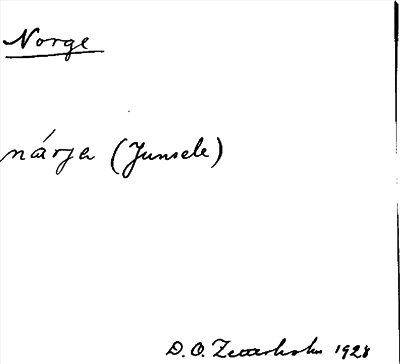 Norge
nárja (Junsele)
D. O. Zetterholm 1928